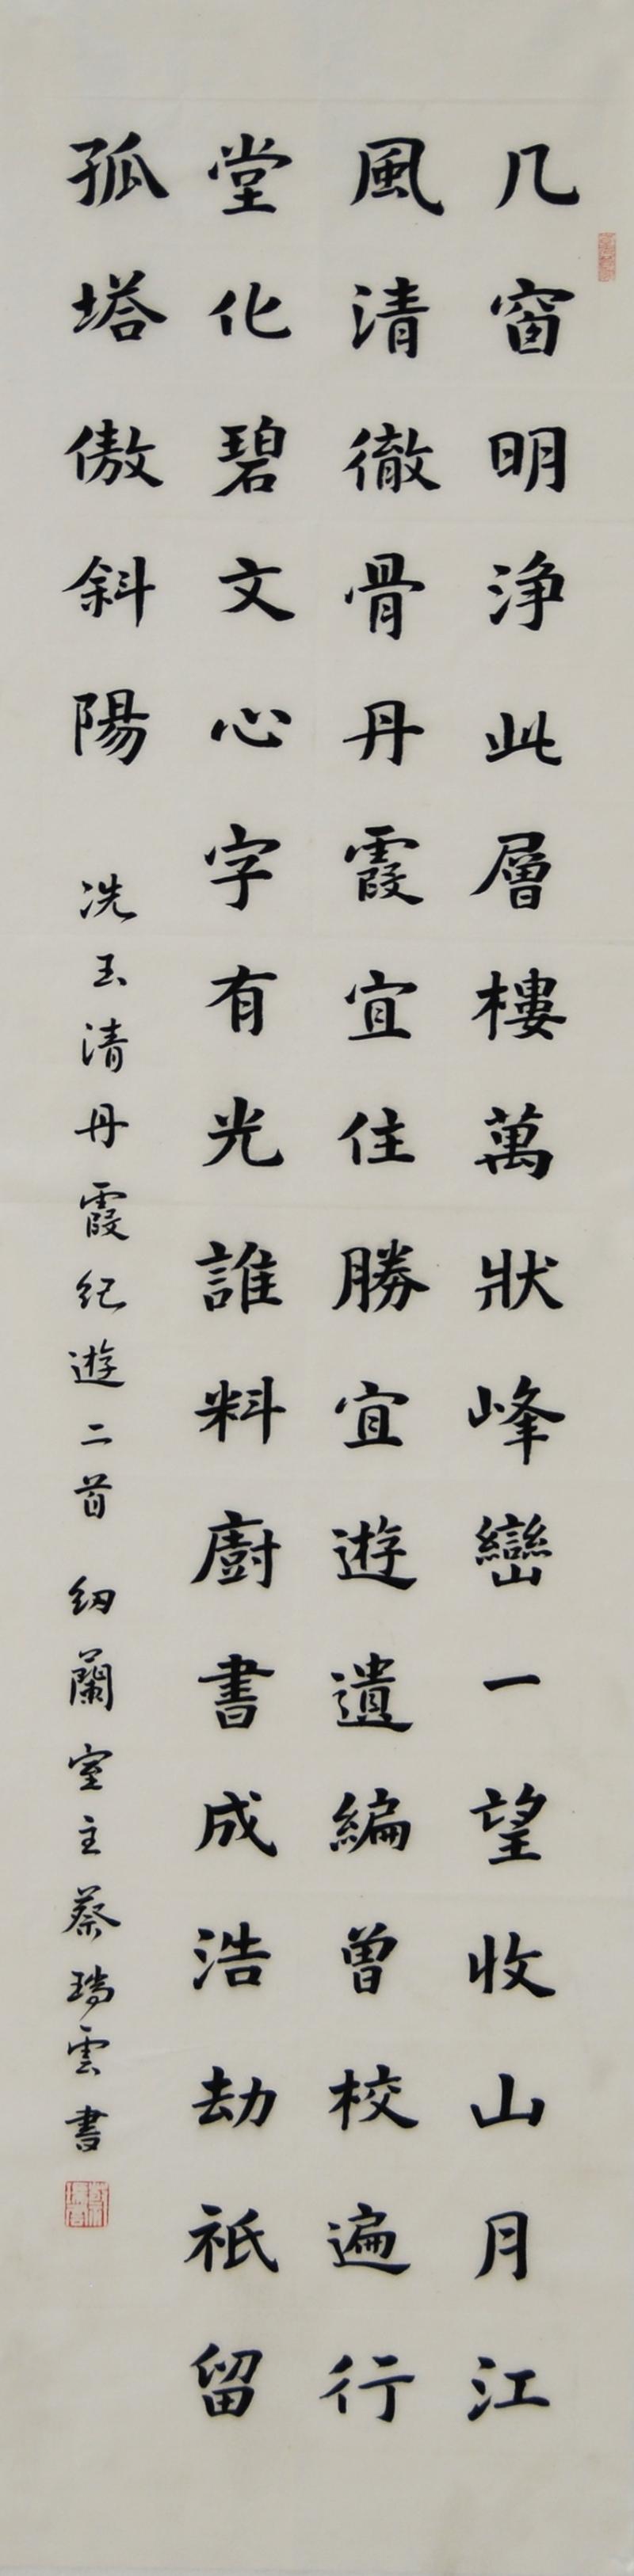 几窗明浄此層樓萬狀峰巒一望收山月江
風清徹骨丹霞宜住勝宜遊遺編曾校遍行
堂化碧文心字有光誰料廚書成浩劫祇留
孤塔傲斜陽
冼玉清丹霞纪遊二首 纫蘭室主蔡瑞雲書